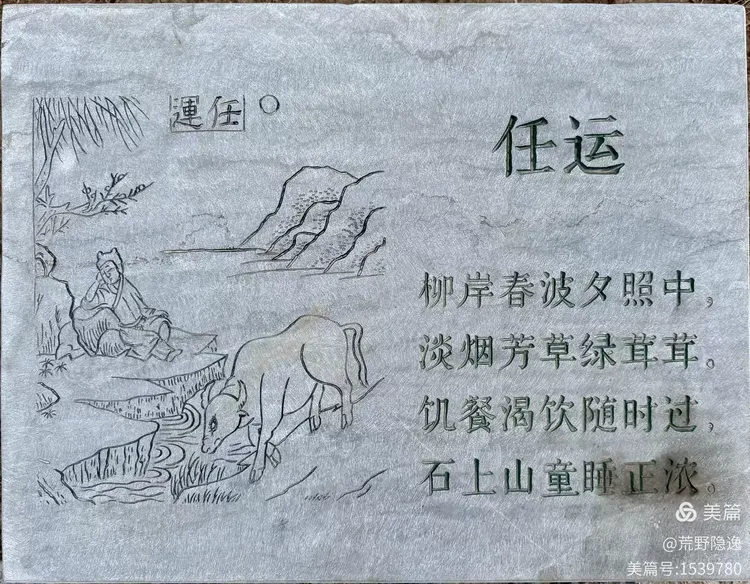 連任
任运
柳岸春波夕照中，
淡烟芳草绿茸茸。
饥餐渴饮随时过，
石上山童睡正浓。
美篇
@荒野隐逸
美篇号:1539780